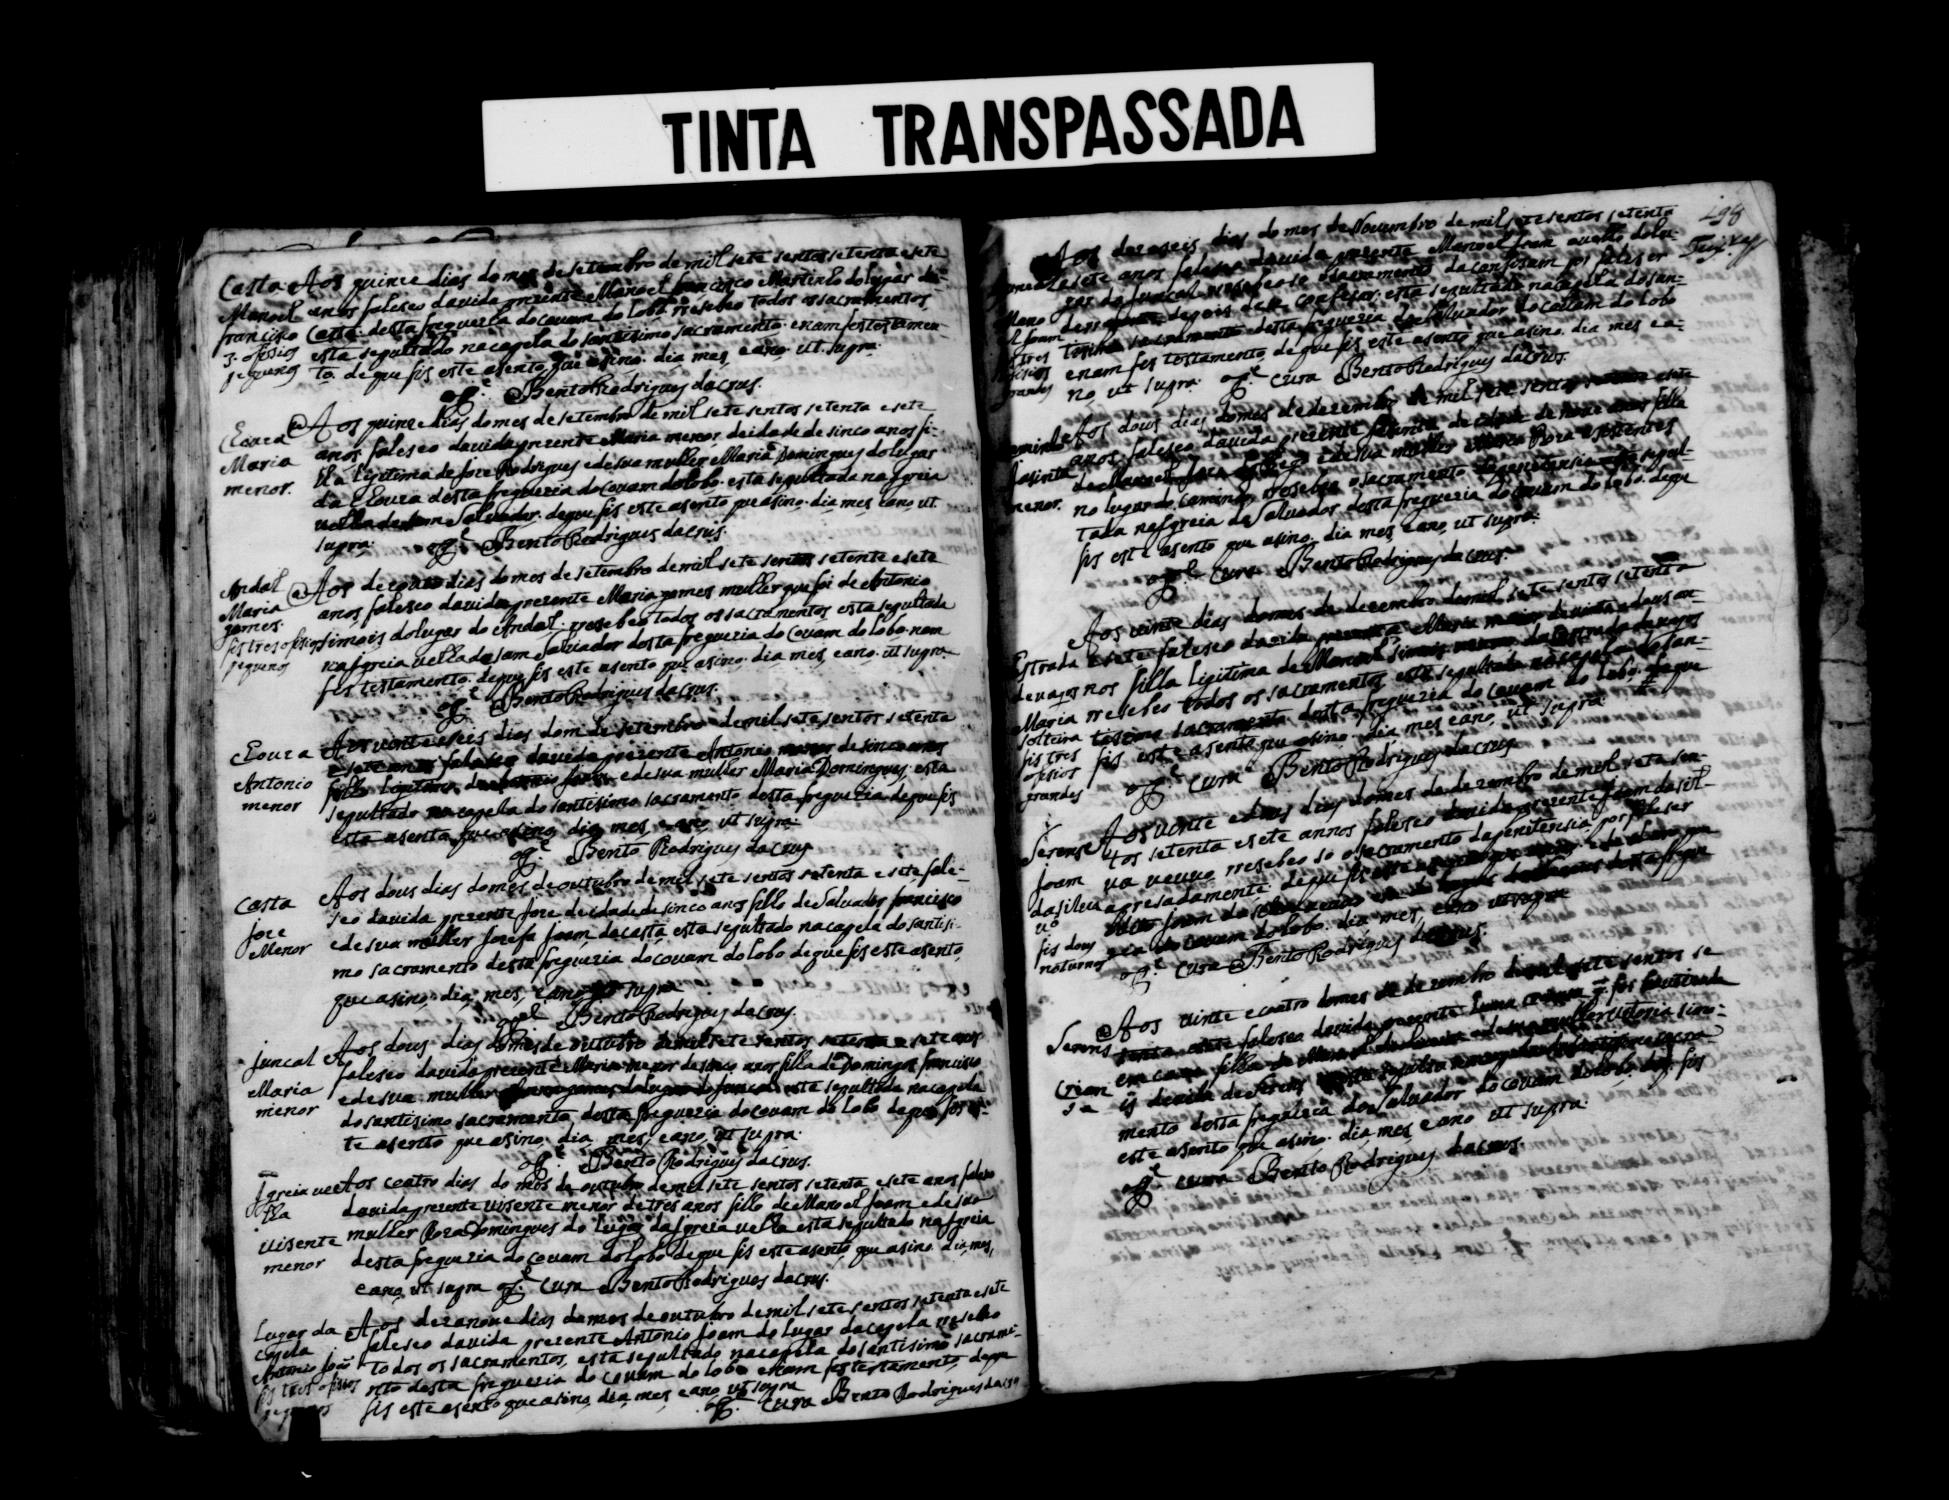 TINTA TRANSPASSADA
Casta
Manoel
francisco
3. ofisios
pequenos
Aos quinze dias do mes de setembro de mil sete sentos setenta e sete
anos faleseo da vida prezente Manoel francisco Martinho do lugar da
Casta desta freguezia do Couam do lobo rresebeo todos os sacramentos
esta sepultado na capela do santisimo sacramento enam fes testamen-
to de que fis este asento que asino dia mes, e ano. ut supra.
Bento Rodrigues da Crus.
Loura
Maria
menor.
Aos quinze dias do mes de setembro de mil sete sentos setenta e sete
anos faleseo da vida prezente Maria menor de idade de sinco anos fi-
lha legitima de Joze Rodrigues e de sua mulher Maria Domingues do lugar
da Loura desta freguezia do Couam do lobo. esta sepultada na Igreia
velha de Sam Salvador. de que fis este asento que asino. dia mes e ano ut.
supra.
Bento Rodrigues da Crus.
Andal
Maria
gomes.
fis tres ofisios
pequenos
dias do mes de setembro de mil sete sentos setenta e sete
anos faleseo da vida prezente Maria gomes mulher que foi de Antonio
simois do lugar do Andal. rresebeo todos os sacramentos esta sepultada
na Igreia velha de Sam Salvador desta freguezia do Couam do lobo. nam
fes testamento. de que fis este asento que asino. dia mes, e ano. ut supra.
Bento Rodrigues da Crus.
Loura
Antonio
menor
Aos vinte e seis dias do m de setembro de mil sete sentos setenta
e sete anos faleseo da vida prezente Antonio menor de sinco anos
e de sua mulher Maria Domingues. esta
sepultado na capella do santisimo sacramento desta freguezia de que fis
este asento que asino dia mes, e ano ut supra
Bento Rodrigues da Crus
Casta
Joze
Menor
Aos dous dias do mes de outubro de mil sete sentos setenta e sete fale-
seo da vida prezente Joze de idade de sinco anos filho de Salvador francisco
e de sua mulher Josefa Joam da casta esta sepultado na capela do santisi-
mo sacramento desta freguezia do Couam do lobo de que fis este asento
que asino. dia, mes, e ano ut supra
Bento Rodrigues da Crus.
Juncal
Maria
menor
Aos dous dias do mes de outubro de mil sete sentos setenta e sete anos
faleseo da vida prezente Maria menor de sinco anos filha de Domingos francisco
e de sua mulher gomes do lugar do Juncal esta sepultada na capela
do santisimo sacramento desta freguezia do Couam do lobo de que fis es-
te asento que asino. dia mes, e ano, ut supra.
Bento Rodrigues da Crus.
Igreia ve
lha
Visente
menor
Aos coatro dias do mes de outubro de mil sete sentos setenta e sete anos faleseo
da vida prezente Visente menor de tres anos filho de Manoel Joam e de sua
mulher Roza Domingues do lugar da Igreia velha esta sepultado na Igreia
desta freguezia do Couam do lobo de que fis este asento que asino. dia, mes,
e ano, ut supra Cura Bento Rodrigues da Crus.
Lugar da
Capela
Antonio Joam
fis tres ofisios
pequenos
Aos dezanove dias do mes de outubro de mil sete sentos setenta e sete
faleseo da vida prezente Antonio Joam do lugar da capela rresebeo
todos os sacramentos, esta sepultado na capela do santisimo sacram-
nto desta freguezia do Couam do lobo enam fes testamento de que
fis este asento que asino, dia, mes, e ano, ut supra
Cura Bento Rodrigues da Crus
198
Aos dezaseis dias do mes de Novembro de mil sete sentos setenta
e sete anos faleseo da vida prezente Manoel Joam do lu-
gar do Juncal rresebeo so o sacramento da confisam
depois de se confesar. esta sepultado na capela do san-
tisimo sacramento desta freguezia de Salvador do Couam do lobo
enam fes testamento, de que fis este asento que asino. dia mes e a-
no, ut supra. Cura Bento Rodrigues da Crus.
Jasinta
menor.
Aos dous dias do mes de dezembro de mil sete sentos setenta e sete
anos faleseo da vida prezente Jasinta de idade de nove anos filha
de Manoel
no lugar do Caminho rresebeo o sacramento da penitensia esta sepul-
tada na Igreia de Salvador desta freguezia do Couam do lobo. de que
fis este asento que asino. dia mes e ano, ut supra.
Cura Bento Rodrigues da Crus.
Estrada
de vagos
Maria
solteira
fis tres
ofisios
grandes
Aos vinte dias do mes de dezembro de mil sete sentos setenta
e sete faleseo da vida prezente Maria maior de vinte e dous an-
nos filha legitima de Manoel simois da Estrada de vagos
rresebeo todos os sacramentos esta sepultada na capela do san-
tisimo sacramento desta freguezia do Couam do lobo. de que
fis este asento que asino. dia mes e ano, ut supra
Cura Bento Rodrigues da Crus
Serens
Joam
da silva
vo
fis dous
noturnos
Aos vinte e dous dias do mes de dezembro de mil sete sen-
tos setenta e sete annos faleseo da vida prezente Joam da sil-
va veuvo rresebeo so o sacramento da penitensia por falleser
apresadamente, de que fis este
Joam da silva
do Couam do lobo. dia, mes, e ano ut supra
Cura Bento Rodrigues da Crus.
Serens
Crian
sa
Aos vinte e coatro do mes de dezembro de mil sete sentos se
tenta e sete faleseo da vida prezente huma criansa q foi bautizada
em caza filha de Manoel e de sua mulher vitoria simo-
is de
mento desta freguezia do Salvador do Couam do lobo. de q. fis
este asento que asino. dia, mes, e ano ut supra.
Cura Bento Rodrigues da Crus.